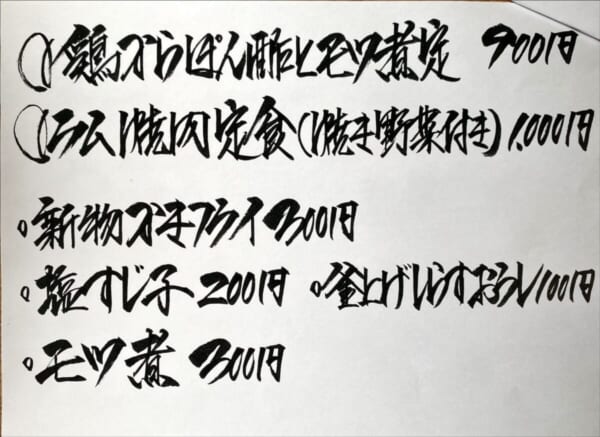 ○鶏からぽん酢とモツ煮定 900円
○ラム焼肉定食(焼き野菜付き) 1,000円
。新物かきフライ300円
。塩すじ子 200円 。釜上げしらすおろし100円
。モツ煮 300円